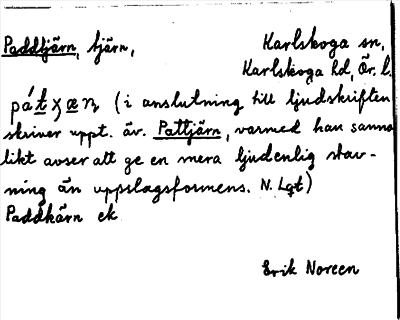 Paddtjärn, tjärn, Karlskoga sn,
Karlskoga hd, Ör. l.
(i anslutning till ljudskriften
skriver uppt. äv. Pattjärn, varmed han sanno
likt avser att ge en mera ljudenlig stav-
ning än uppslagsformens. N. Lgt)
Paddkärn ek
Erik Noreen